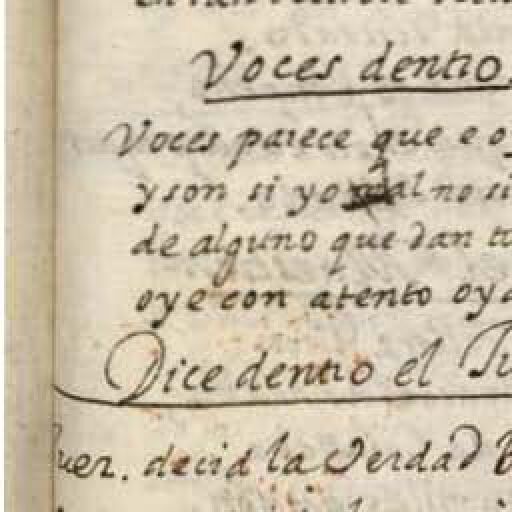 Voces dentro
Voces parece que e oy
y son si yo mal no si
de alguno que dan
oye con atento oy
Dice dentro el Ju
Juez. decid la verdad